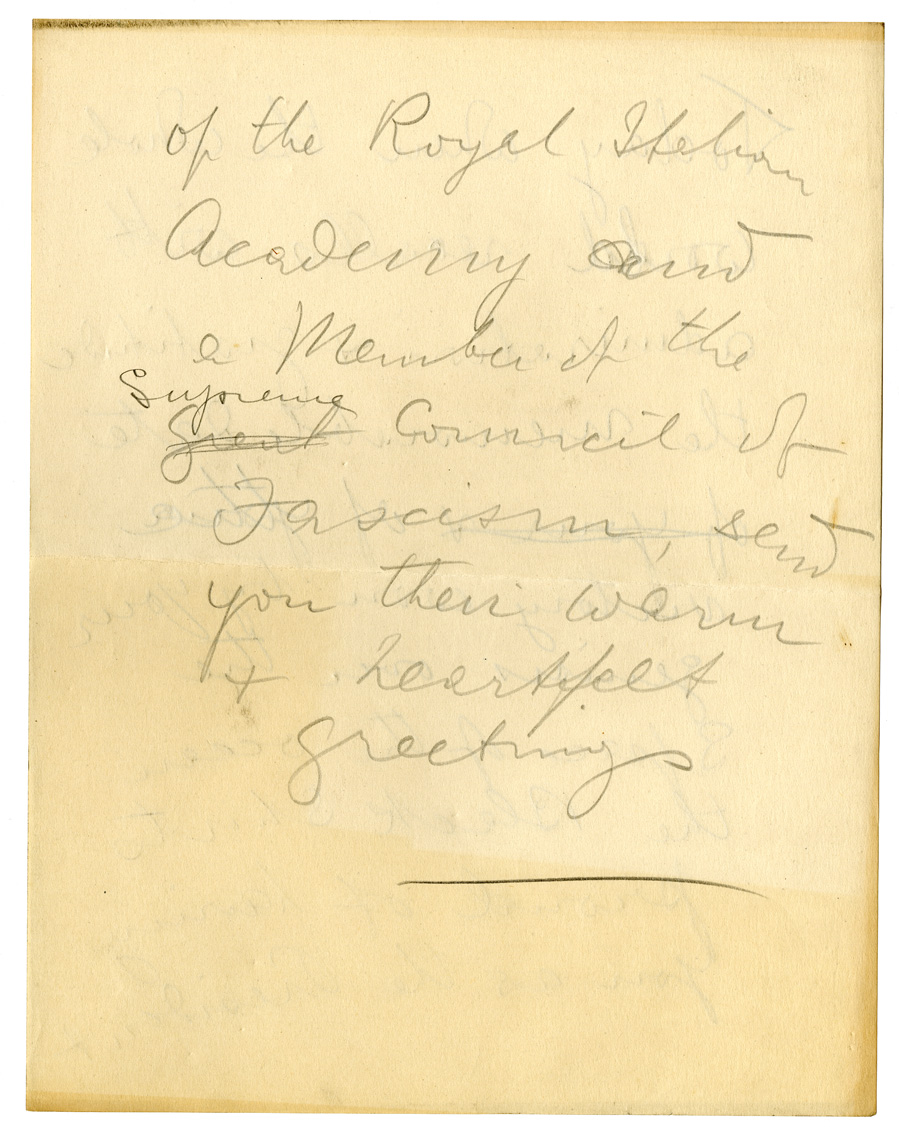 of the Royal Italian
Academy and
a Member of the
Supreme
Great Council of
Fascism, send
you their warm
+ heartfelt
greetings